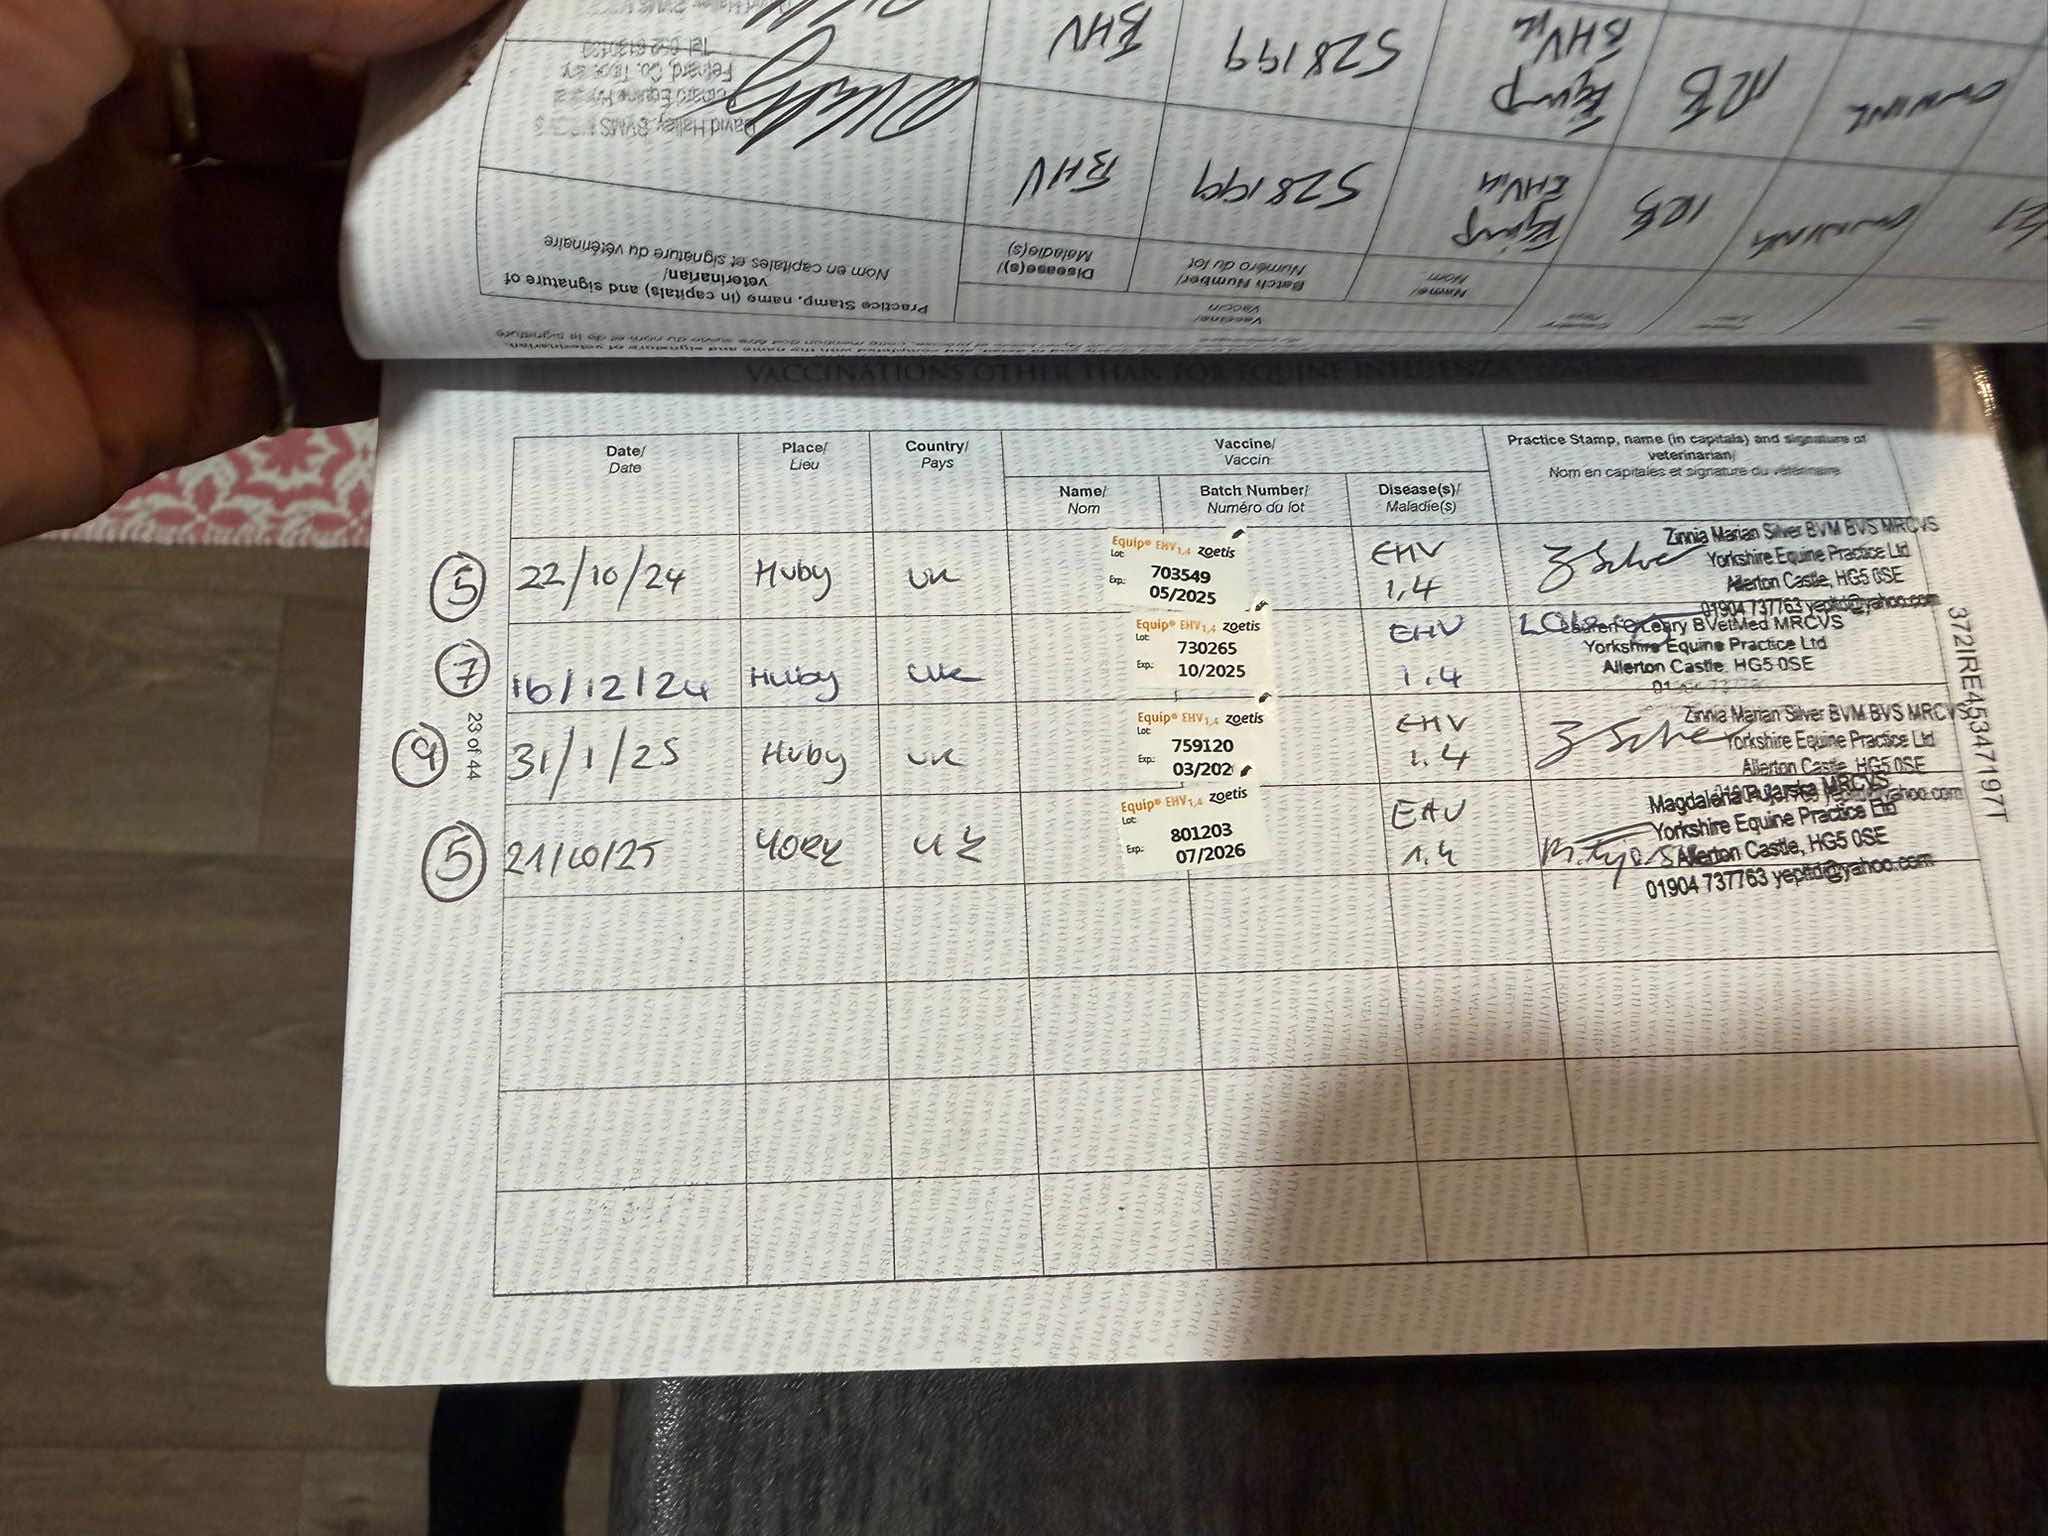 David Hally, BVMS
Fethard, Co.
EHV
528199
Equip
EHV 1,4
IRE
EHV
528199
Equip
EHV 1,4
IRE
Practice Stamp, name (in capitals) and signature of
veterinarian/
Nom en capitales et signature du vétérinaire
Disease(s)/
Maladie(s)
Batch Number/
Numéro du lot
Name/
Nom
Vaccine/
Vaccin
VACCINATIONS OTHER THAN FOR EQUINE INFLUENZA
Date/
Date
Place/
Lieu
Country/
Pays
Vaccine/
Vaccin
Practice Stamp, name (in capitals) and signature of
veterinarian/
Nom en capitales et signature du vétérinaire
Name/
Nom
Batch Number/
Numéro du lot
Disease(s)/
Maladie(s)
5 22/10/24 Huby UK
Equip® EHV1,4 zoetis
Lot:
703549
Exp.: 05/2025
EHV
1,4
Z Silver
Zinnia Marian Silver BVM BVS MRCVS
Yorkshire Equine Practice Ltd
Allerton Castle, HG5 0SE
01904 737763 yepltd@yahoo.com
7 16/12/24 Huby UK
Equip® EHV1,4 zoetis
Lot:
730265
Exp.: 10/2025
EHV
1.4
Lauren O'Leary BVetMed MRCVS
Yorkshire Equine Practice Ltd
Allerton Castle, HG5 0SE
9 31/1/25 Huby UK
Equip® EHV1,4 zoetis
Lot:
759120
Exp.: 03/202
EHV
1.4
Z Silver
Zinnia Marian Silver BVM BVS MRCVS
Yorkshire Equine Practice Ltd
Allerton Castle, HG5 0SE
5 21/10/25 YORK UK
Equip® EHV1,4 zoetis
Lot:
801203
Exp.: 07/2026
EHV
1.4
Magdalena MRCVS
Yorkshire Equine Practice Ltd
Allerton Castle, HG5 0SE
01904 737763 yepltd@yahoo.com
23 of 44
372IRE45347197T